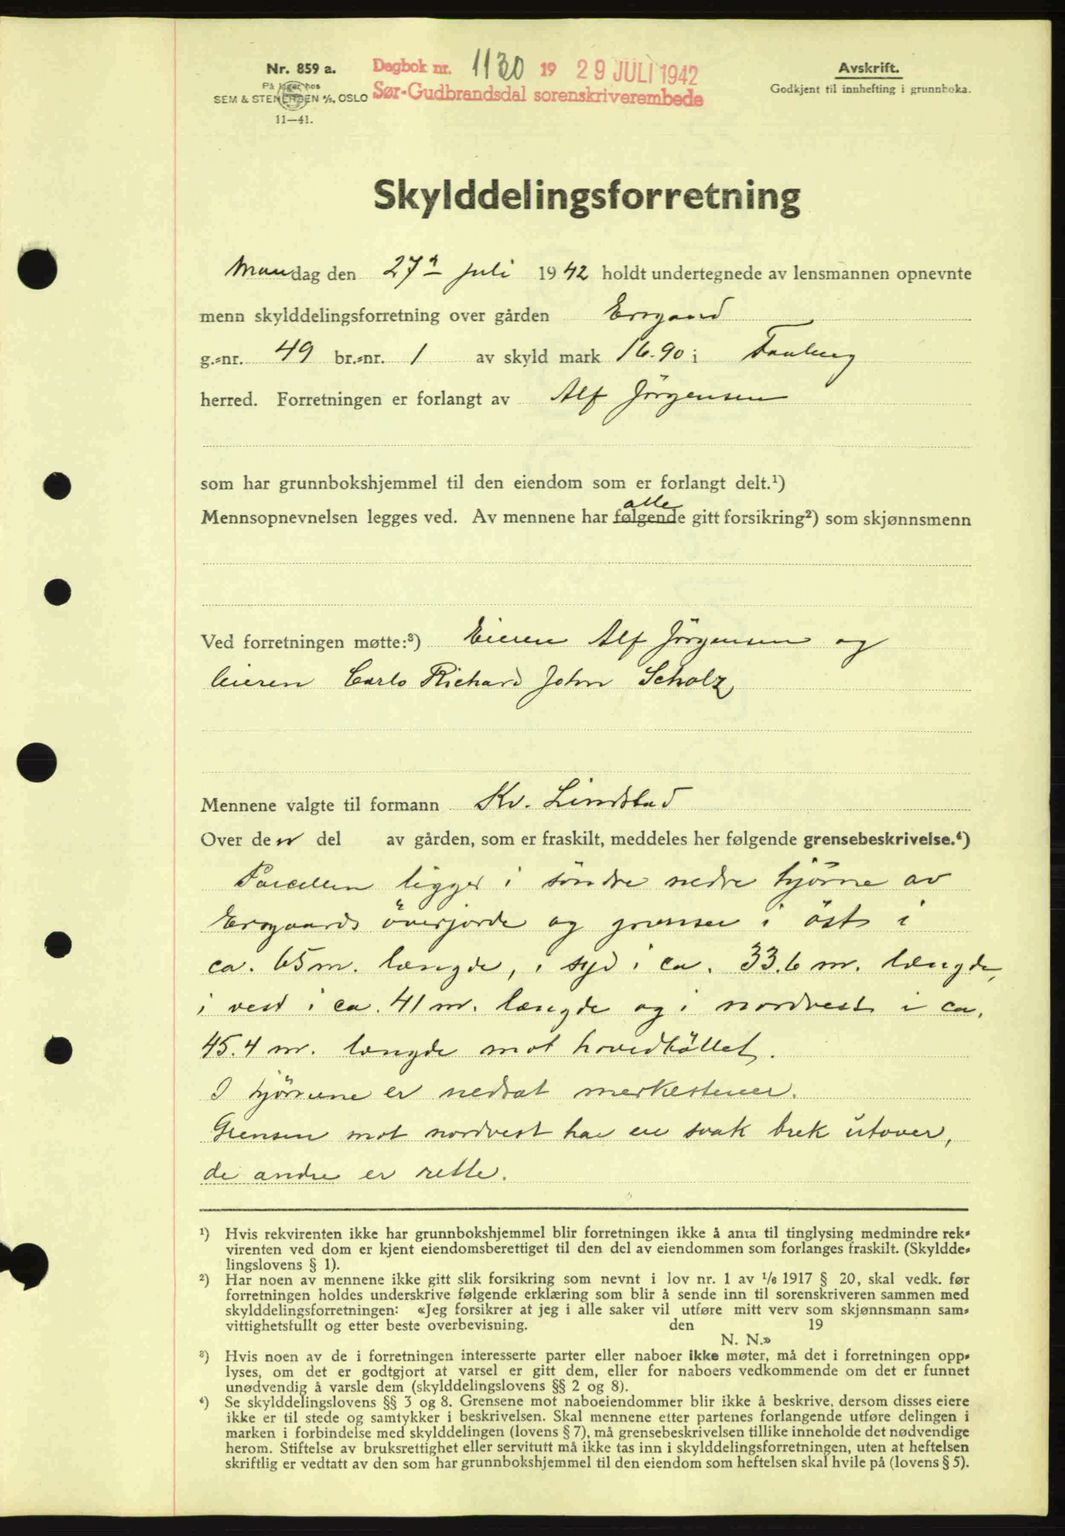 Nr. 859 a.
På lager hos
SEM & STENERSEN A/S, OSLO
11—41.
Dagbok nr. 1130 19 29 JULI 1942
Sør-Gudbrandsdal sorenskriverembede
Avskrift.
Godkjent til innhefting i grunnboka.
Skylddelingsforretning
Mandag den 27de juli 1942 holdt undertegnede av lensmannen opnevnte
menn skylddelingsforretning over gården Ersgaard
g.-nr. 49 br.-nr. 1 av skyld mark 16.90 i Faaberg
herred. Forretningen er forlangt av Alf Jörgensen
som har grunnbokshjemmel til den eiendom som er forlangt delt.¹)
alle
Mennsopnevnelsen legges ved. Av mennene har følgende gitt forsikring²) som skjønnsmenn
Ved forretningen møtte:³) Eieren Alf Jörgensen og
leieren Carlo Richard John Scholz
Mennene valgte til formann Kr. Lindstad
Over den del av gården, som er fraskilt, meddeles her følgende grensebeskrivelse.⁴)
Parcellen ligger i söndre nedre hjörne av
Ersgaards överjorde og grenser i öst i
ca. 65 m. længde, i syd i ca. 33.6 m. længde,
i vest i ca. 41 m. længde og i nordvest i ca.
45.4 m. længde mot hovedböllet.
I hjörnene er nedsat merkestener.
Grensen mot nordvest har en svak bræk utover,
de andre er rette.
¹) Hvis rekvirenten ikke har grunnbokshjemmel blir forretningen ikke å anta til tinglysing medmindre rek-
virenten ved dom er kjent eiendomsberettiget til den del av eiendommen som forlanges fraskilt. (Skyldde-
lingslovens § 1).
²) Har noen av mennene ikke gitt slik forsikring som nevnt i lov nr. 1 av 1/6 1917 § 20, skal vedk. før
forretningen holdes underskrive følgende erklæring som blir å sende inn til sorenskriveren sammen med
skylddelingsforretningen: «Jeg forsikrer at jeg i alle saker vil utføre mitt verv som skjønnsmann sam-
vittighetsfullt og etter beste overbevisning. den 19
N. N.»
³) Hvis noen av de i forretningen interesserte parter eller naboer ikke møter, må det i forretningen opp-
lyses, om det er godtgjort at varsel er gitt dem, eller for naboers vedkommende om det er funnet
unødvendig å varsle dem (skylddelingslovens §§ 2 og 8).
⁴) Se skylddelingslovens §§ 3 og 8. Grensene mot naboeiendommer blir ikke å beskrive, dersom disses eiere
ikke er til stede og samtykker i beskrivelsen. Skal mennene etter partenes forlangende utføre delingen i
marken i forbindelse med skylddelingen (lovens § 7), må grensebeskrivelsen tillike inneholde det nødvendige
herom. Stiftelse av bruksrettighet eller servitutt må ikke tas inn i skylddelingsforretningen, uten at heftelsen
skriftlig er vedtatt av den som har grunnbokshjemmel til den eiendom som heftelsen skal hvile på (lovens § 5).